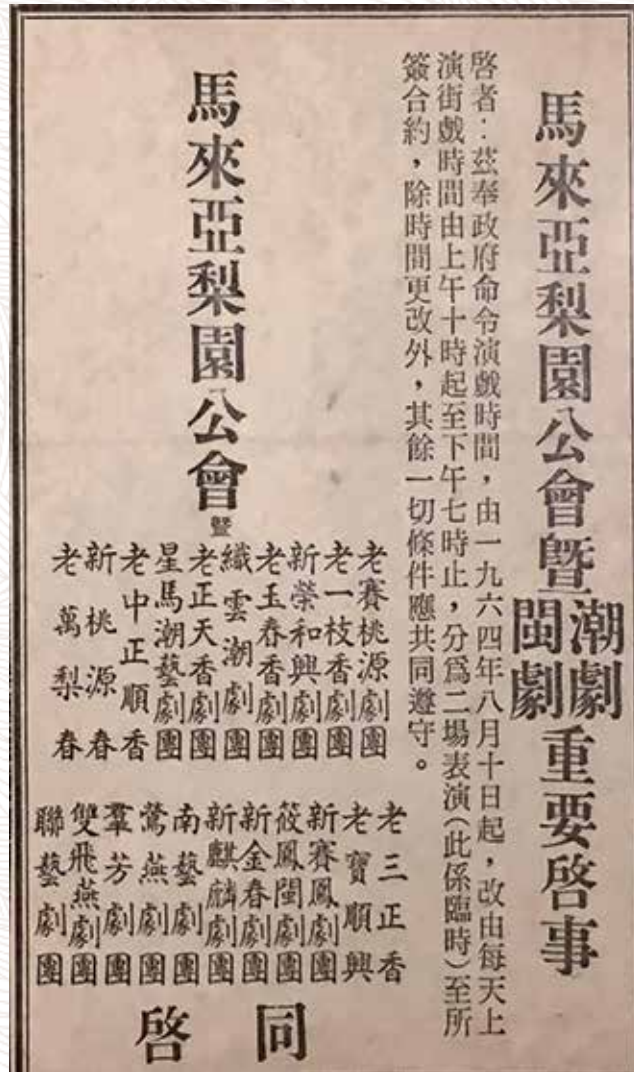 馬來亞梨園公會曁潮劇閩劇重要啓事
啓者：茲奉政府命令演戲時間，由一九六四年八月十日起，改由每天上
演街戲時間由上午十時起至下午七時止，分爲二場表演（此係臨時）至所
簽合約，除時間更改外，其餘一切條件應共同遵守。
馬來亞梨園公會暨
老賽桃源劇團
老一枝香劇團
新榮和興劇團
老玉春香劇團
纖雲潮劇團
老正天香劇團
星馬潮藝劇團
老中正順香
新桃源春
老萬梨春
老三正香
老寶順興
新賽鳳劇團
筱鳳閩劇團
新金春劇團
新麒麟劇團
南藝劇團
鶯燕劇團
羣芳劇團
雙飛燕劇團
聯藝劇團
同啓